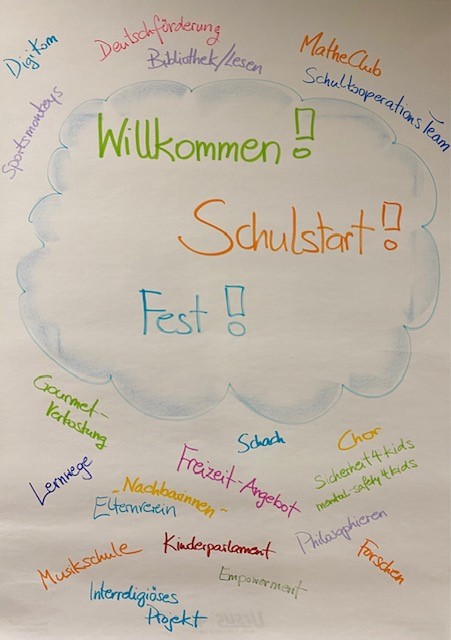 DigiKom
Deutschförderung
Bibliothek/Lesen
MatheClub
SchulkooperationsTeam
Sportsmonkeys
Willkommen!
Schulstart!
Fest!
Gourmet-
Verkostung
Schach
Chor
Lernwege
Freizeit-Angebot
Sicherheit4kids
mental-safety4kids
- Nachbarinnen -
Elternverein
Philosophieren
Musikschule
Kinderparlament
Forschen
Empowerment
Interreligiöses
Projekt